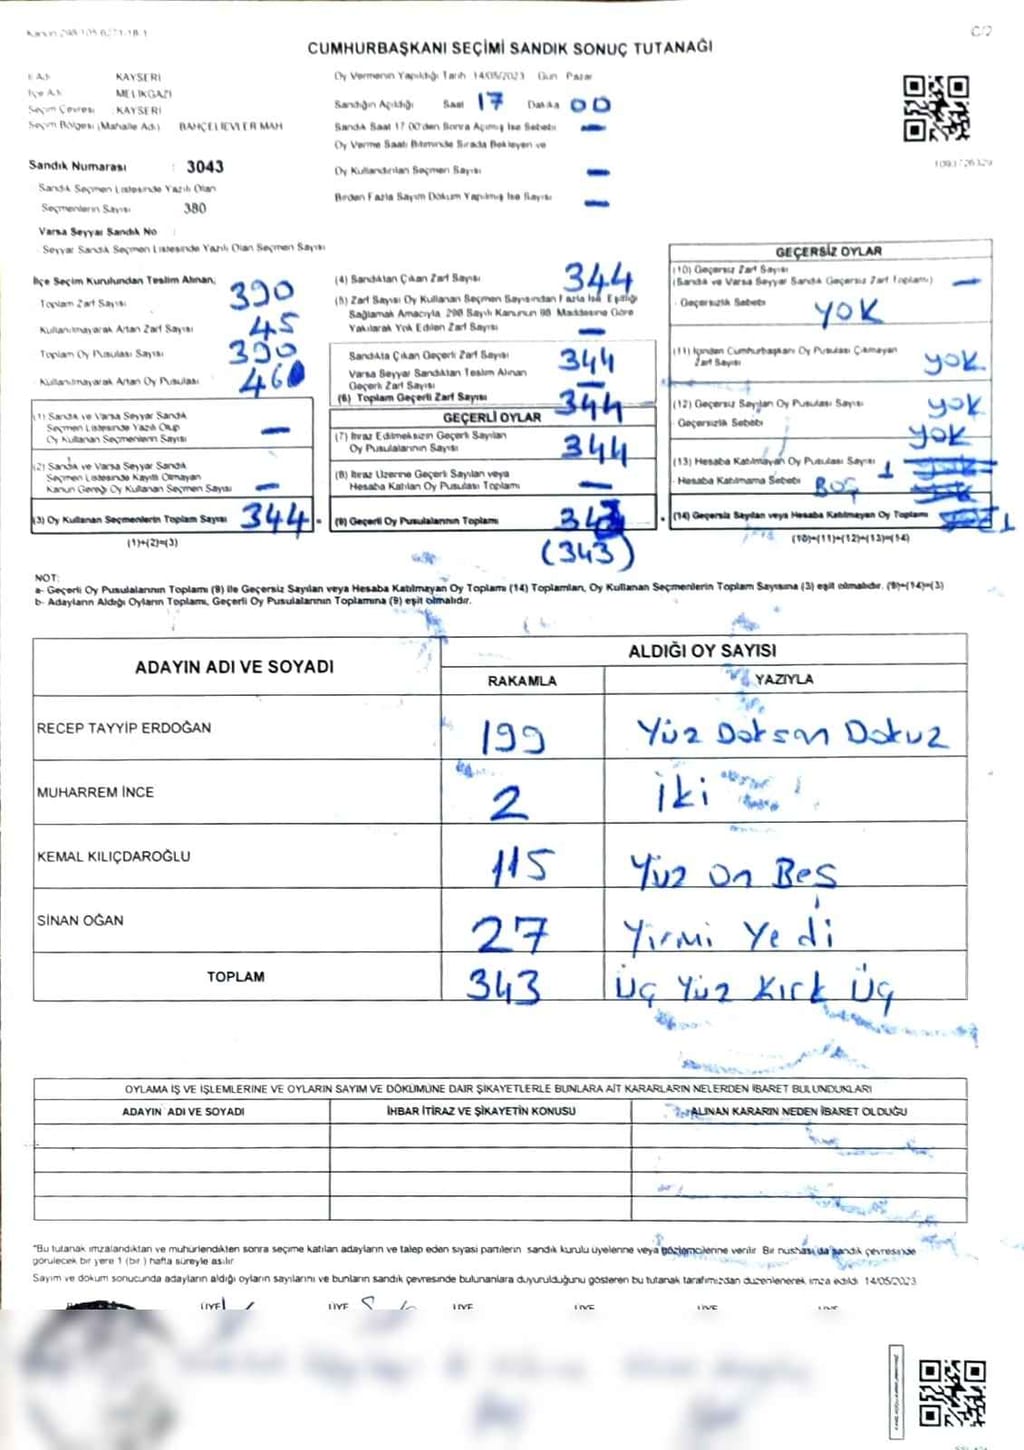 Kanun 298/105 6271-18-1
C/2
CUMHURBAŞKANI SEÇİMİ SANDIK SONUÇ TUTANAĞI
İl Adı KAYSERİ
İlçe Adı MELİKGAZİ
Seçim Çevresi KAYSERİ
Seçim Bölgesi (Mahalle Adı) BAHÇELİEVLER MAH
Sandık Numarası : 3043
Sandık Seçmen Listesinde Yazılı Olan
Seçmenlerin Sayısı 380
Varsa Seyyar Sandık No :
Seyyar Sandık Seçmen Listesinde Yazılı Olan Seçmen Sayısı
Oy Vermenin Yapıldığı Tarih 14/05/2023 Gün Pazar
Sandığın Açıldığı Saat 17 Dakika 00
Sandık Saat 17.00'den Sonra Açılmış İse Sebebi —
Oy Verme Saati Bitiminde Sırada Bekleyen ve
Oy Kullandırılan Seçmen Sayısı —
Birden Fazla Sayım Döküm Yapılmış İse Sayısı —
1093726329
İlçe Seçim Kurulundan Teslim Alınan,
Toplam Zarf Sayısı 390
Kullanılmayarak Artan Zarf Sayısı 45
Toplam Oy Pusulası Sayısı 390
Kullanılmayarak Artan Oy Pusulası 46
(1) Sandık ve Varsa Seyyar Sandık
Seçmen Listesinde Yazılı Olup
Oy Kullanan Seçmenlerin Sayısı —
(2) Sandık ve Varsa Seyyar Sandık
Seçmen Listesinde Kayıtlı Olmayan
Kanun Gereği Oy Kullanan Seçmen Sayısı —
(3) Oy Kullanan Seçmenlerin Toplam Sayısı 344
(1)+(2)=(3)
(4) Sandıktan Çıkan Zarf Sayısı 344
(5) Zarf Sayısı Oy Kullanan Seçmen Sayısından Fazla İse, Eşitliği
Sağlamak Amacıyla 298 Sayılı Kanunun 98 Maddesine Göre
Yakılarak Yok Edilen Zarf Sayısı —
Sandıkta Çıkan Geçerli Zarf Sayısı 344
Varsa Seyyar Sandıktan Teslim Alınan
Geçerli Zarf Sayısı —
(6) Toplam Geçerli Zarf Sayısı 344
GEÇERLİ OYLAR
(7) İtiraz Edilmeksizin Geçerli Sayılan
Oy Pusulalarının Sayısı 344
(8) İtiraz Üzerine Geçerli Sayılan veya
Hesaba Katılan Oy Pusulası Toplamı —
(9) Geçerli Oy Pusulalarının Toplamı 343
(343)
GEÇERSİZ OYLAR
(10) Geçersiz Zarf Sayısı
(Sandık ve Varsa Seyyar Sandık Geçersiz Zarf Toplamı) —
- Geçersizlik Sebebi YOK
(11) İçinden Cumhurbaşkanı Oy Pusulası Çıkmayan
Zarf Sayısı YOK
(12) Geçersiz Sayılan Oy Pusulası Sayısı YOK
- Geçersizlik Sebebi YOK
(13) Hesaba Katılmayan Oy Pusulası Sayısı 1
- Hesaba Katılmama Sebebi BOŞ
(14) Geçersiz Sayılan veya Hesaba Katılmayan Oy Toplamı 1
(10)+(11)+(12)+(13)=(14)
NOT:
a- Geçerli Oy Pusulalarının Toplamı (9) ile Geçersiz Sayılan veya Hesaba Katılmayan Oy Toplamı (14) Toplamları, Oy Kullanan Seçmenlerin Toplam Sayısına (3) eşit olmalıdır. (9)+(14)=(3)
b- Adayların Aldığı Oyların Toplamı, Geçerli Oy Pusulalarının Toplamına (9) eşit olmalıdır.
ADAYIN ADI VE SOYADI ALDIĞI OY SAYISI
RAKAMLA YAZIYLA
RECEP TAYYİP ERDOĞAN 199 Yüz Doksan Dokuz
MUHARREM İNCE 2 İki
KEMAL KILIÇDAROĞLU 115 Yüz On Beş
SİNAN OĞAN 27 Yirmi Yedi
TOPLAM 343 Üç Yüz Kırk Üç
OYLAMA İŞ VE İŞLEMLERİNE VE OYLARIN SAYIM VE DÖKÜMÜNE DAİR ŞİKAYETLERLE BUNLARA AİT KARARLARIN NELERDEN İBARET BULUNDUKLARI
ADAYIN ADI VE SOYADI İHBAR İTİRAZ VE ŞİKAYETİN KONUSU ALINAN KARARIN NEDEN İBARET OLDUĞU
"Bu tutanak imzalandıktan ve mühürlendikten sonra seçime katılan adayların ve talep eden siyasi partilerin sandık kurulu üyelerine veya gözlemcilerine verilir. Bir nushası da sandık çevresinde
görülecek bir yere 1 (bir) hafta süreyle asılır
Sayım ve döküm sonucunda adayların aldığı oyların sayılarını ve bunların sandık çevresinde bulunanlara duyurulduğunu gösteren bu tutanak tarafımızdan düzenlenerek imza edildi 14/05/2023
ÜYE ÜYE ÜYE ÜYE ÜYE ÜYE